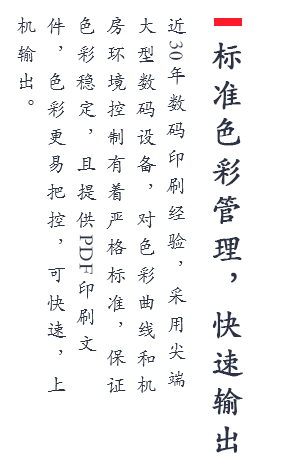 标准色彩管理，快速输出
近30年数码印刷经验，采用尖端
大型数码设备，对色彩曲线和机
房环境控制有着严格标准，保证
色彩稳定，且提供PDF印刷文
件，色彩更易把控，可快速，上
机输出。